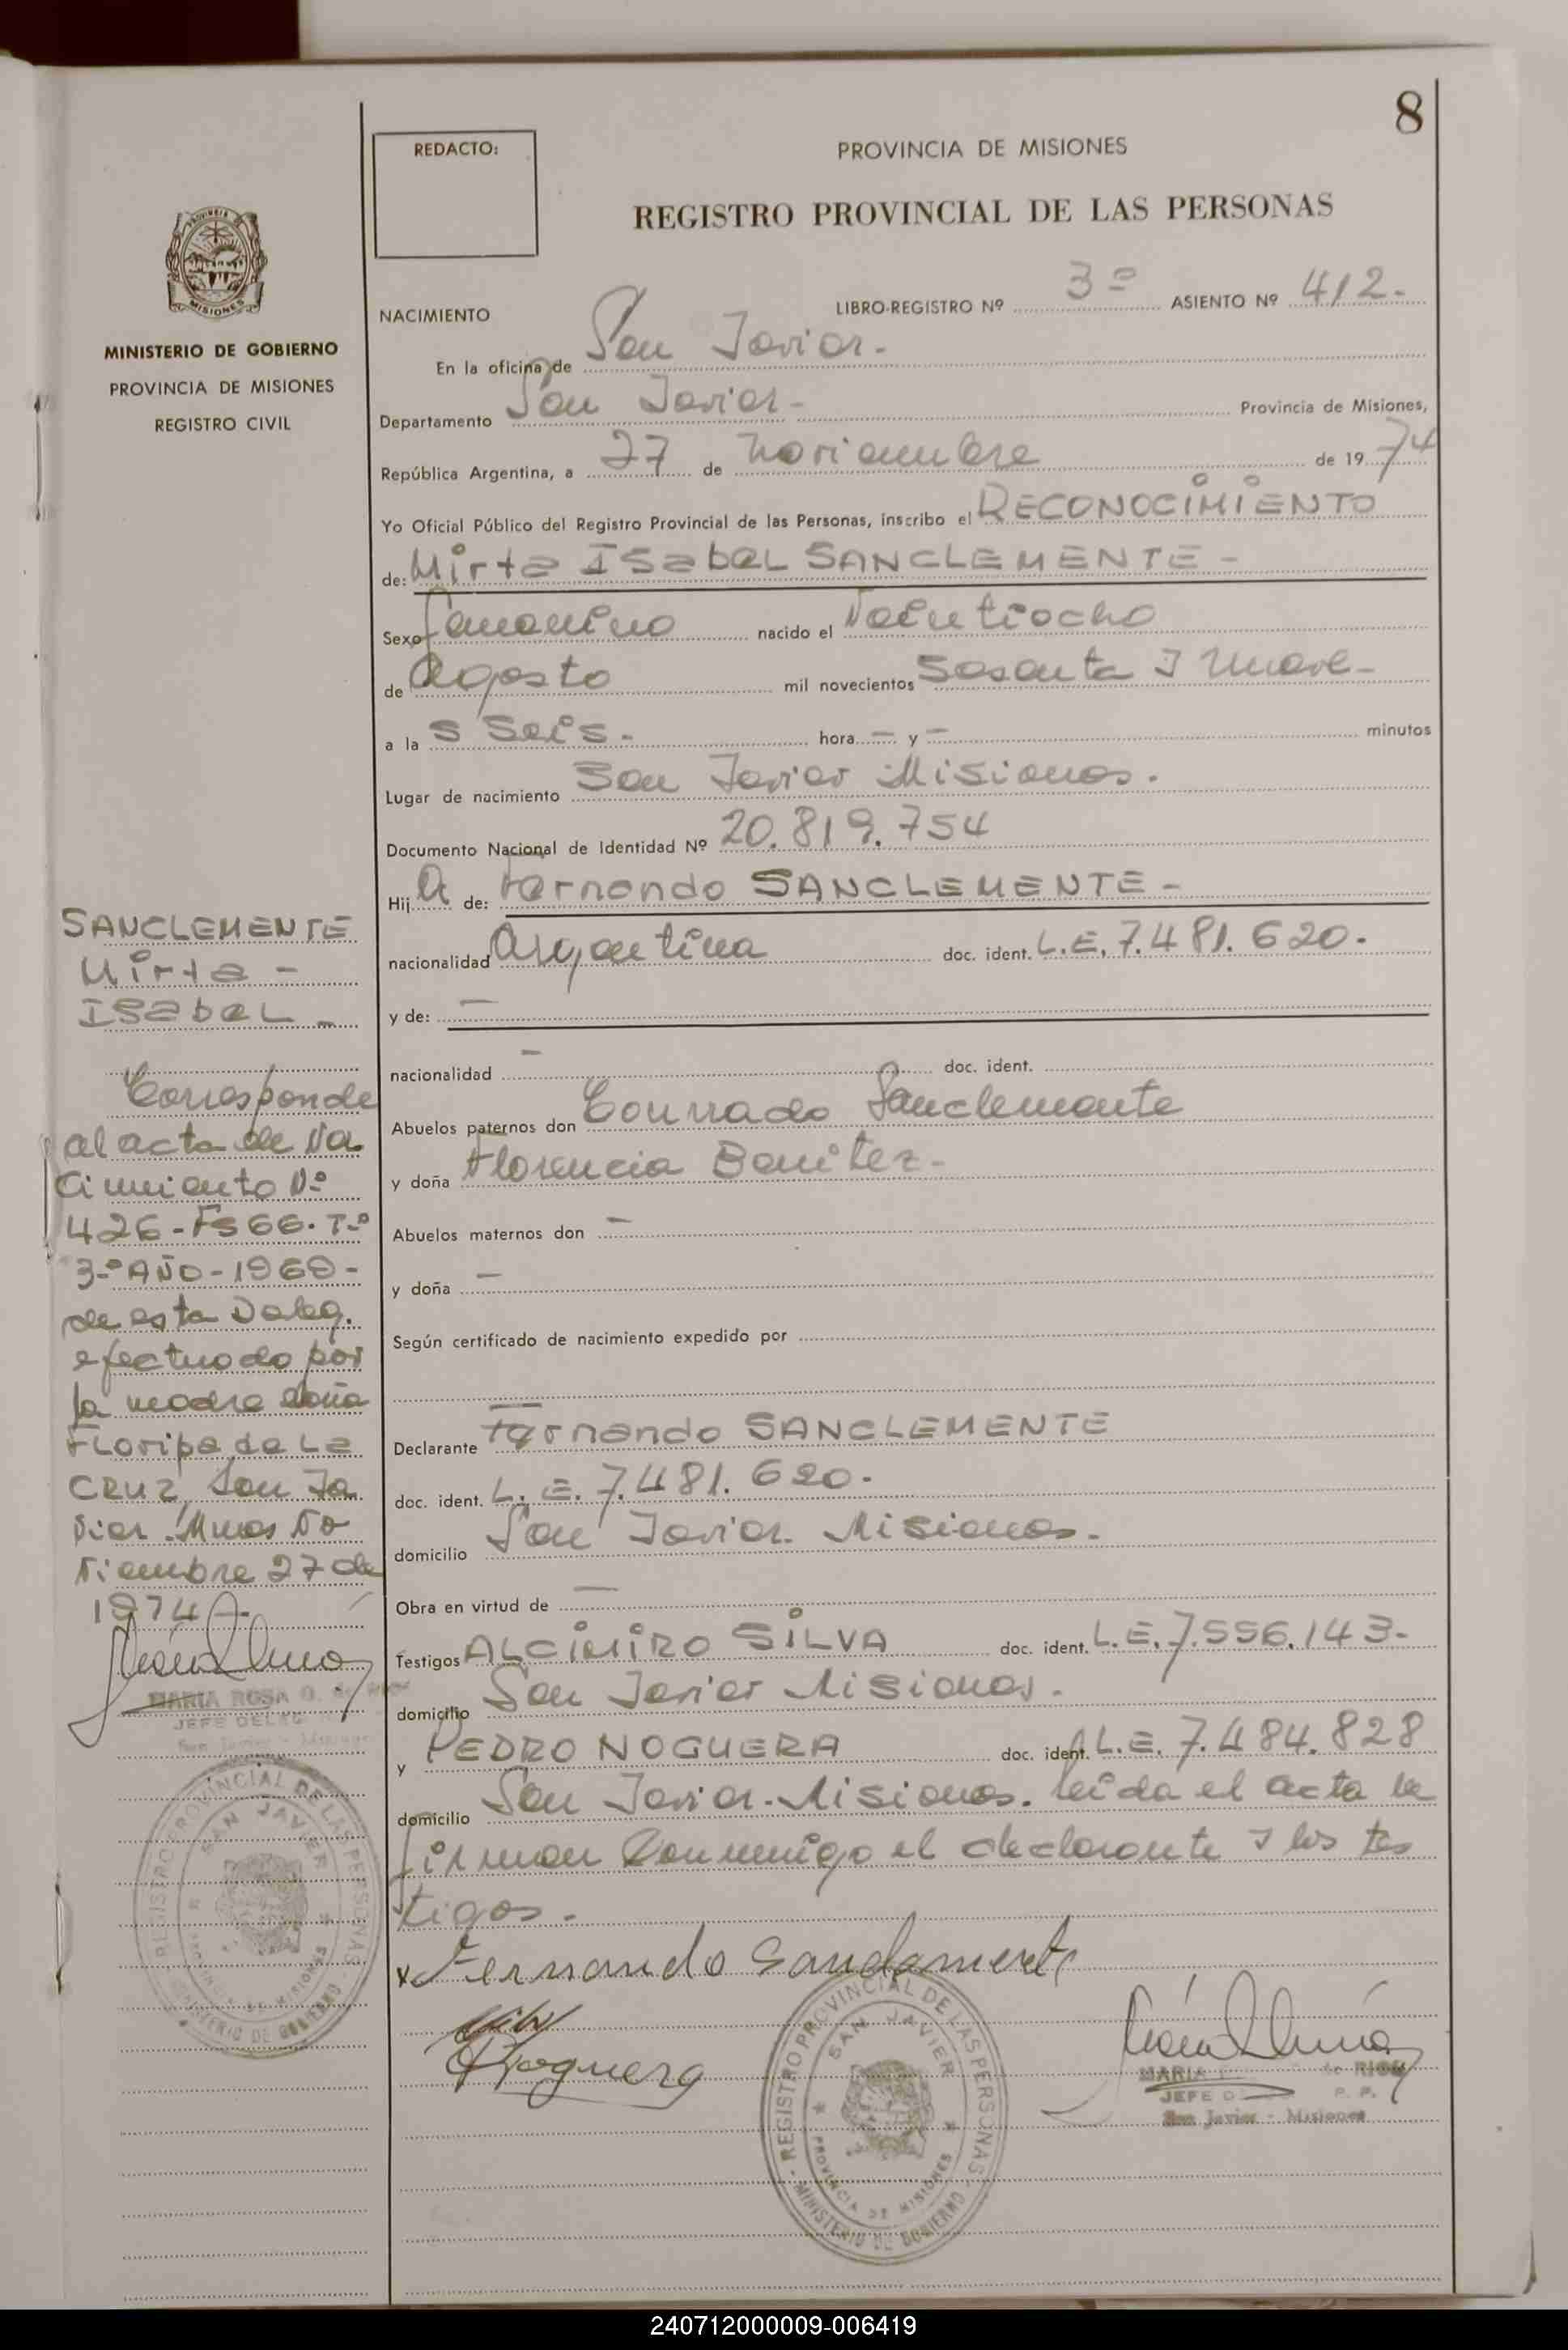 8
REDACTO:
PROVINCIA DE MISIONES
REGISTRO PROVINCIAL DE LAS PERSONAS
MISIONES
MINISTERIO DE GOBIERNO
PROVINCIA DE MISIONES
REGISTRO CIVIL
NACIMIENTO LIBRO-REGISTRO Nº 3º ASIENTO Nº 412.-
En la oficina de San Javier.-
Departamento San Javier.- Provincia de Misiones,
República Argentina, a 27 de noviembre de 1974
Yo Oficial Público del Registro Provincial de las Personas, inscribo el RECONOCIMIENTO
de: Mirta ISabeL SANCLEMENTE -
Sexo femenino nacido el Veintiocho
de Agosto mil novecientos Sesenta y nueve-
a la s Seis.- hora - y - minutos
Lugar de nacimiento San Javier Misiones.
Documento Nacional de Identidad Nº 20.819.754
Hij a de: Fernando SANCLEMENTE -
nacionalidad Argentina doc. ident. L.E. 7.481.620.-
y de: —
nacionalidad - doc. ident.
Abuelos paternos don Conrrado Sanclemente
y doña Florencia Benitez-
Abuelos maternos don —
y doña —
Según certificado de nacimiento expedido por
Declarante Fernando SANCLEMENTE
doc. ident. L.E. 7.481.620.-
domicilio San Javier Misiones.-
Obra en virtud de —
Testigos ALCIMIRO SILVA doc. ident. L.E. 7.556.143-
domicilio San Javier Misiones.
y PEDRO NOGUERA doc. ident. L.E. 7.484.828
domicilio San Javier-Misiones. leida el acta la
firman Conmmigo el declarante y los tes
tigos.-
x Fernando Sanclemente
Silv
Noguera
SANCLEMENTE
Mirta -
ISabeL -
Corresponde
al acta de Na
Cimiento Nº
426-Fs 66. Tº
3-º AÑO-1969-
de esta Deleg.
efectuado por
la madre doña
FLoripa de La
CRUZ, San Ja
vier Mnes No
viembre 27 de
1974.-
MARIA ROSA O. de RIOS
JEFE DELEG
San Javier - Misiones
REGISTRO PROVINCIAL DE LAS PERSONAS
SAN JAVIER
PROVINCIA DE MISIONES
MINISTERIO DE GOBIERNO
REGISTRO PROVINCIAL DE LAS PERSONAS
SAN JAVIER
PROVINCIA DE MISIONES
MINISTERIO DE GOBIERNO
MARIA de RIOS
JEFE D P. P.
San Javier - Misiones
240712000009-006419